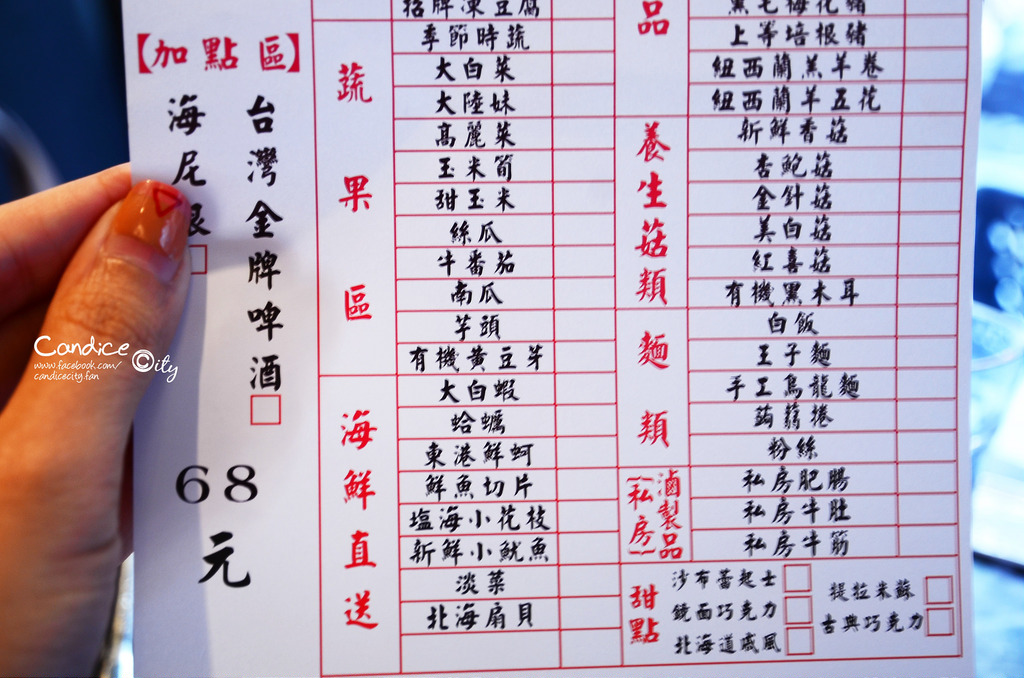 【加點區】
台灣金牌啤酒
海尼根
68
元
蔬果區
招牌凍豆腐
季節時蔬
大白菜
大陸妹
高麗菜
玉米筍
甜玉米
絲瓜
牛番茄
南瓜
芋頭
有機黃豆芽
海鮮直送
大白蝦
蛤蠣
東港鮮蚵
鮮魚切片
塩海小花枝
新鮮小魷魚
淡菜
北海扇貝
品
黑毛梅花豬
上等培根豬
紐西蘭羔羊卷
紐西蘭羊五花
養生菇類
新鮮香菇
杏鮑菇
金針菇
美白菇
紅喜菇
有機黑木耳
麵類
白飯
王子麵
手工烏龍麵
蒟蒻捲
粉絲
滷製品
(私房)
私房肥腸
私房牛肚
私房牛筋
甜點
沙布蕾起士
鏡面巧克力
北海道戚風
提拉米蘇
古典巧克力
Candice City
www.facebook.com/
candicecity.fan